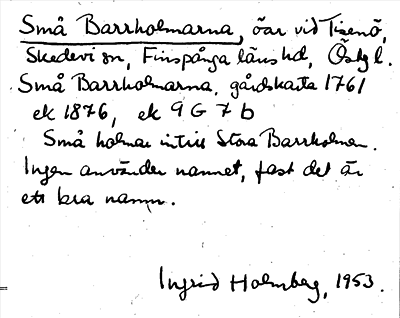 Små Barrholmarna, öar vid Tisenö,
Skedevi sn, Finspånga läns hd, Östgl.
Små Barrholmarna, gårdskarta 1761
ek 1876, ek 9 G 7 b
Små holmar intill Stora Barrholmen.
Ingen använder namnet, fast det är
ett bra namn.
Ingrid Holmberg, 1953.